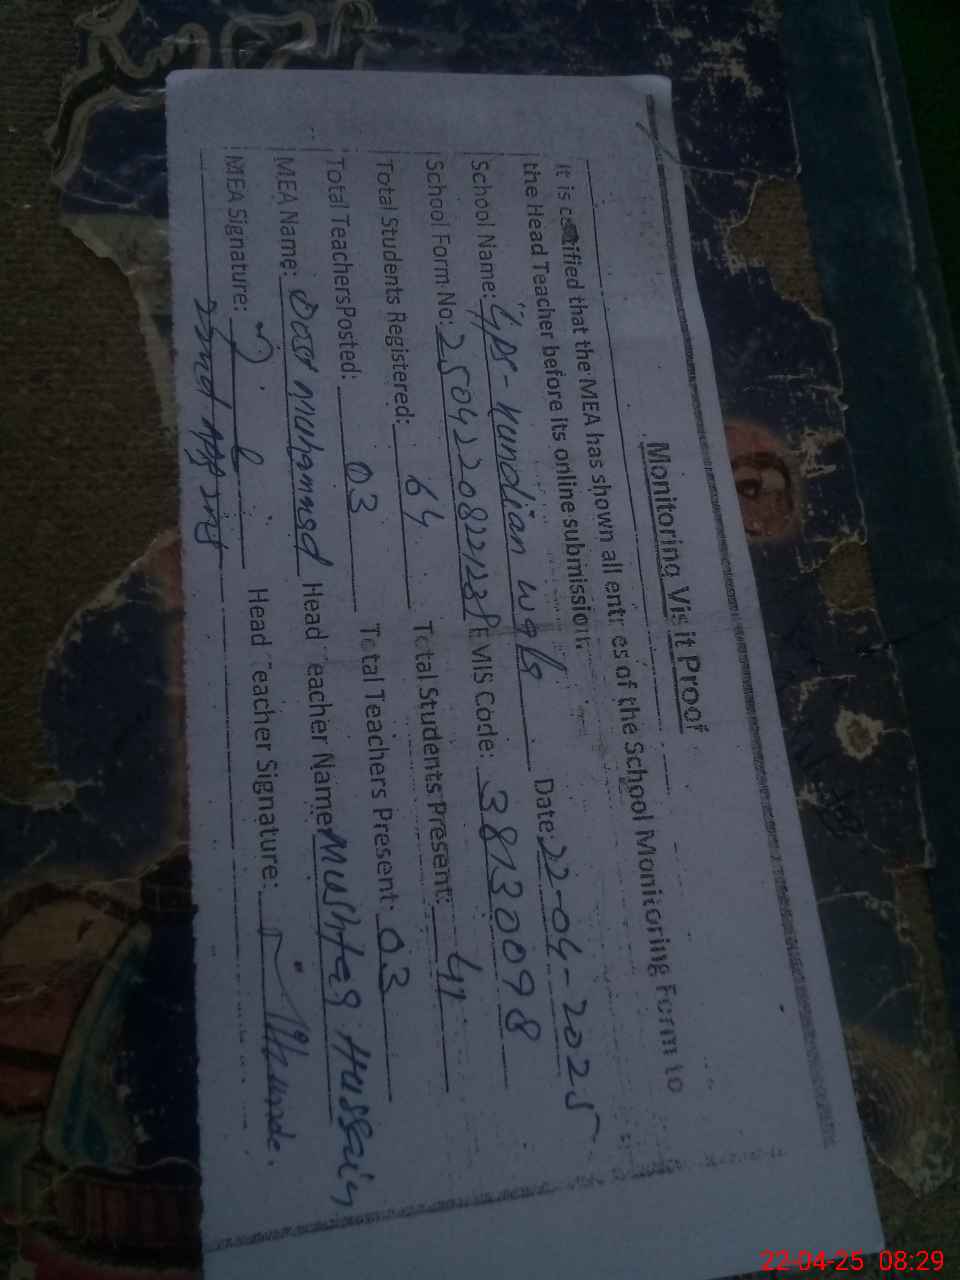 Monitoring Visit Proof
It is certified that the MEA has shown all entries of the School Monitoring Form to
the Head Teacher before its online submission.
School Name: GPS - Nandian Date: 22-04-2025
School Form No: EMIS Code: 38130098
Total Students Registered: 64 Total Students Present: 41
Total Teachers Posted: 03 Total Teachers Present: 03
MEA Name: Dost Muhammad Head Teacher Name Mushtaq Hussain
MEA Signature: Head Teacher Signature:
22-04-25 08:29